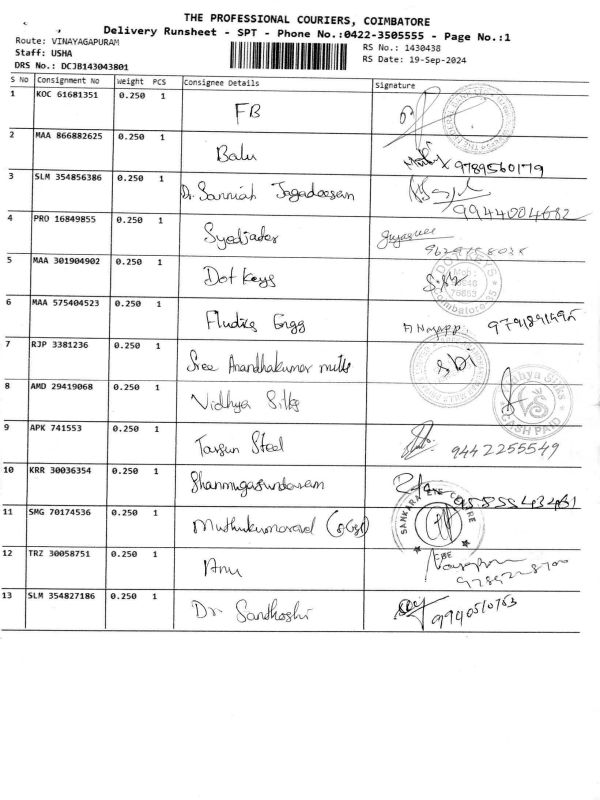 THE PROFESSIONAL COURIERS, COIMBATORE
Delivery Runsheet - SPT - Phone No.:0422-3505555 - Page No.:1
Route: VINAYAGAPURAM
RS No.: 1430438
Staff: USHA
RS Date: 19-Sep-2024
DRS No.: DCJB143043801
S No Consignment No Weight PCS Consignee Details Signature
1 KOC 61681351 0.250 1 FB
2 MAA 866882625 0.250 1 Balu 9789560179
3 SLM 354856386 0.250 1 Dr. Jagadeesan 9944004682
4 PRO 16849855 0.250 1 Syedjafer
5 MAA 301904902 0.250 1 Dot Keys
DOT KEYS Mob: Coimbatore-35
6 MAA 575404523 0.250 1 Fludics Engg
7 RJP 3381236 0.250 1 Sree Anandhakumar mills
8 AMD 29419068 0.250 1 Vidhya Silks
Vidhya Silks VS CASH PAID
9 APK 741553 0.250 1 Steel 9442255549
10 KRR 30036354 0.250 1 Shanmugasundaram
11 SMG 70174536 0.250 1
SANKARA EYE CENTRE CBE
12 TRZ 30058751 0.250 1 Anu
13 SLM 354827186 0.250 1 Dr Santhoshi 9940510753